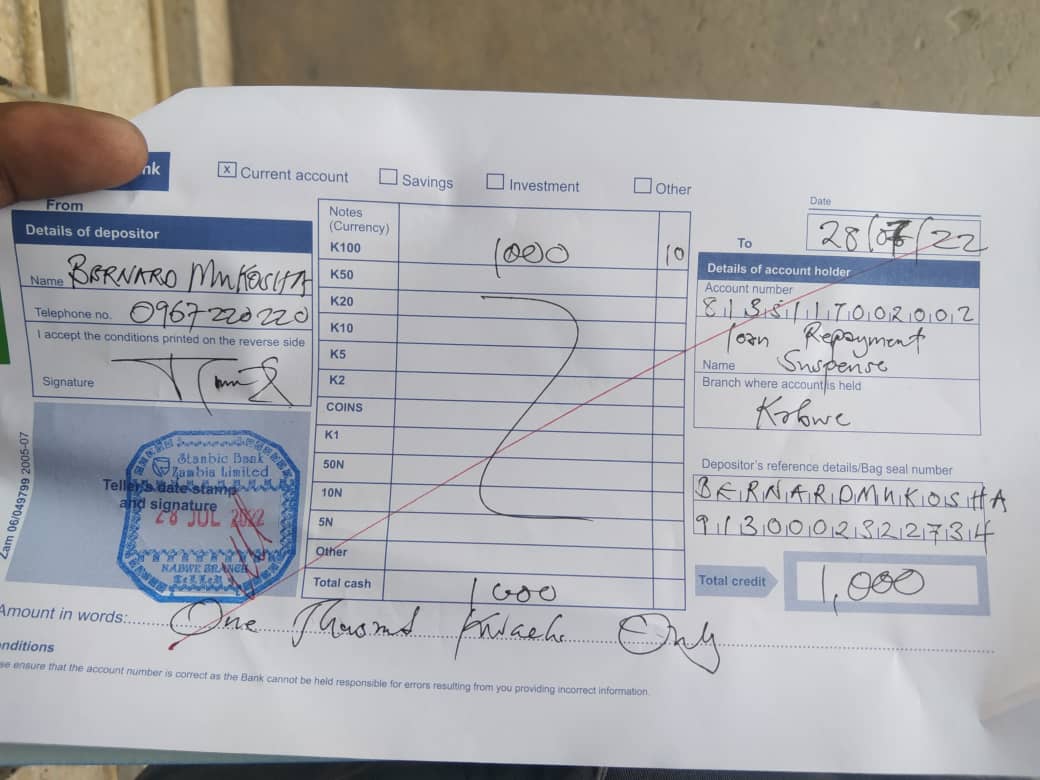 nk
x Current account
Savings
Investment
Other
From
Details of depositor
Name BERNARD MUKOSHA
Telephone no. 0967220220
I accept the conditions printed on the reverse side
Signature
Teller's date stamp
and signature
Stanbic Bank
Zambia Limited
28 JUL 2022
KABWE BRANCH
TELLER
Zam 06/049799 2005-07
Notes
(Currency)
K100 1000 10
K50
K20
K10
K5
K2
COINS
K1
50N
10N
5N
Other
Total cash 1000
Date
28/07/22
To
Details of account holder
Account number
Loan Repayment
Name Suspense
Branch where account is held
Kabwe
Depositor's reference details/Bag seal number
BERNARDMUKOSHA
9130002322734
Total credit 1,000
Amount in words: One Thousand Kwacha Only
nditions
se ensure that the account number is correct as the Bank cannot be held responsible for errors resulting from you providing incorrect information.